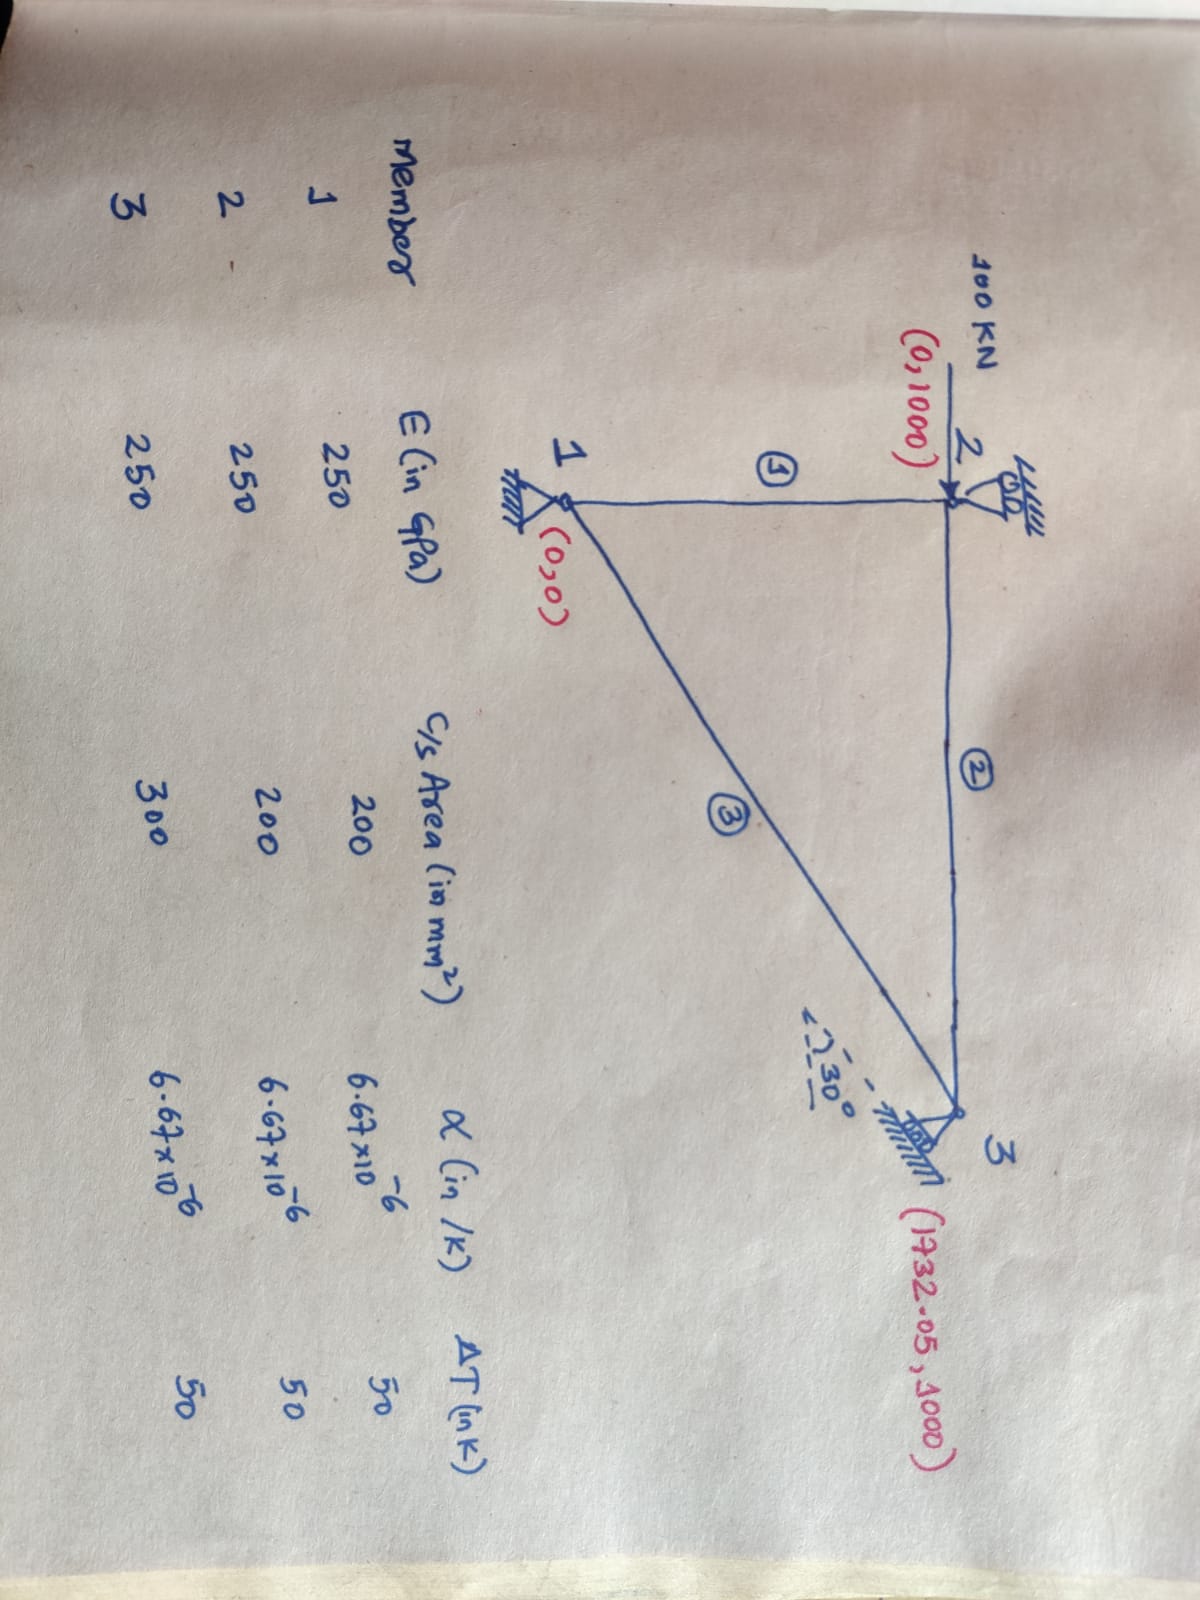 100 KN
2
(0,1000)
②
3
(1732.05, 1000)
30°
①
③
1
(0,0)
Member E (in GPa) C/s Area (in mm²) α (in /K) ΔT (in K)
1 250 200 6.67×10⁻⁶ 50
2 250 200 6.67×10⁻⁶ 50
3 250 300 6.67×10⁻⁶ 50